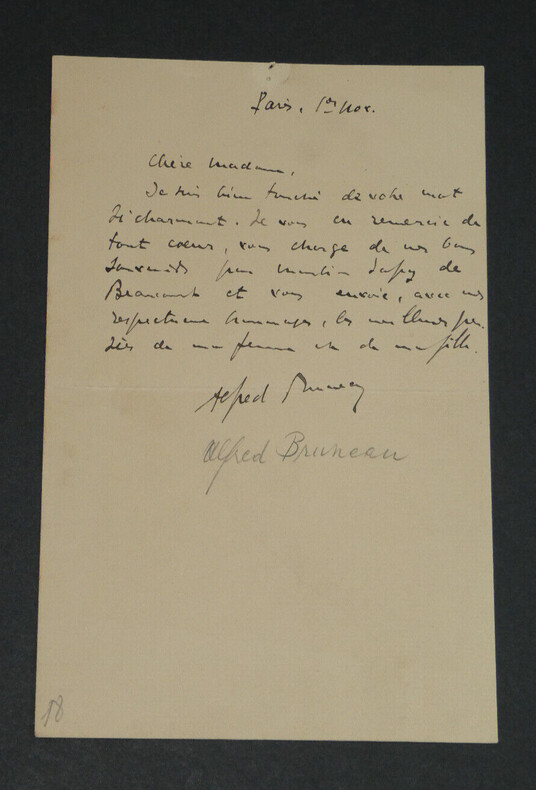 Paris, 1er Nov.
Chère Madame,
Je suis bien touché de votre mot
si charmant. Je vous en remercie de
tout cœur, vous charge de mes bons
souvenirs pour de
et vous envoie, avec mes
respectueux hommages, les meilleures pen-
sées de ma femme et de ma fille.
Alfred Bruneau
Alfred Bruneau
18